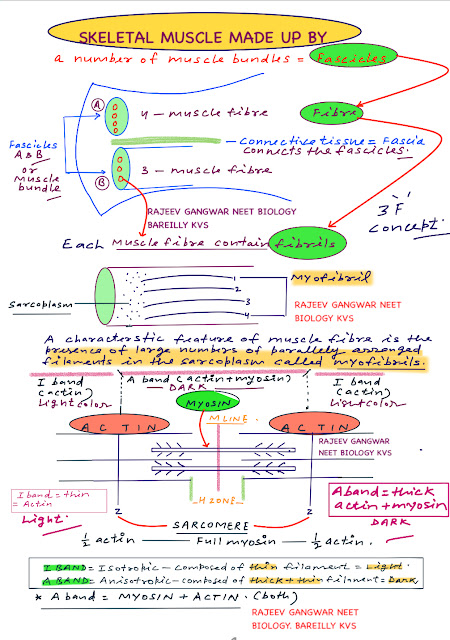 SKELETAL MUSCLE MADE UP BY
a number of muscle bundles = Fascicles
A
4 - muscle fibre
Fibre
Fascicles
A & B
or
Muscle
bundle
- Connective tissue = Fascia
connects the fascicles.
3 - muscle fibre
B
RAJEEV GANGWAR NEET BIOLOGY
BAREILLY KVS
3 'F'
concept.
Each Muscle fibre contain fibrils
1
2
3
4
Myofibril
Sarcoplasm
RAJEEV GANGWAR NEET
BIOLOGY KVS
A characterstic feature of muscle fibre is the
presence of large numbers of parallely arranged
filaments in the sarcoplasm called myofibrils.
I band
(actin)
Light color
A band (actin+myosin)
DARK
I band
(actin)
Light color
MYOSIN
M LINE
ACTIN
ACTIN
RAJEEV GANGWAR
NEET BIOLOGY KVS
I band = thin
= Actin
Light.
H ZONE
A band = thick
actin + myosin
DARK
Z
Z
SARCOMERE
1/2 actin — Full myosin — 1/2 actin.
I BAND = Isotropic - composed of thin filament = Light.
A BAND = Anisotropic - composed of thick + thin filament = Dark
* A band = MYOSIN + ACTIN. (both)
RAJEEV GANGWAR NEET
BIOLOGY. BAREILLY KVS